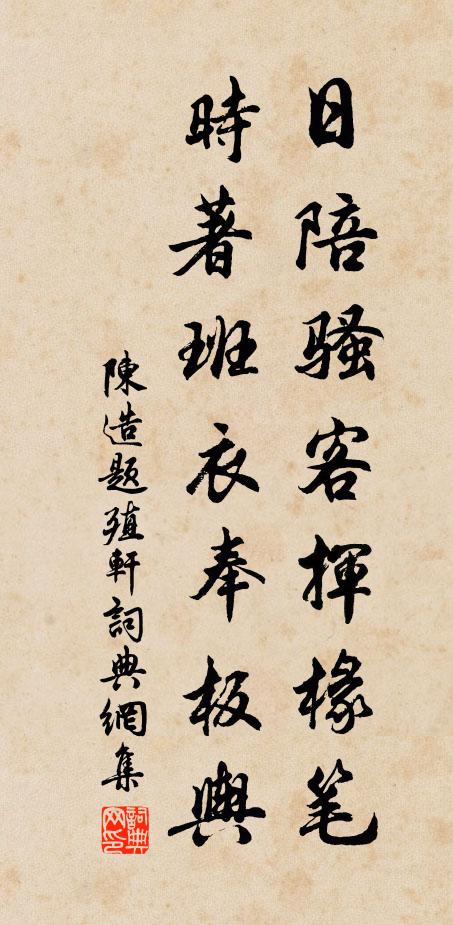 日陪骚客揮椽笔
時著班衣奉板輿
陳造題殖軒詞典網集
詞典网印